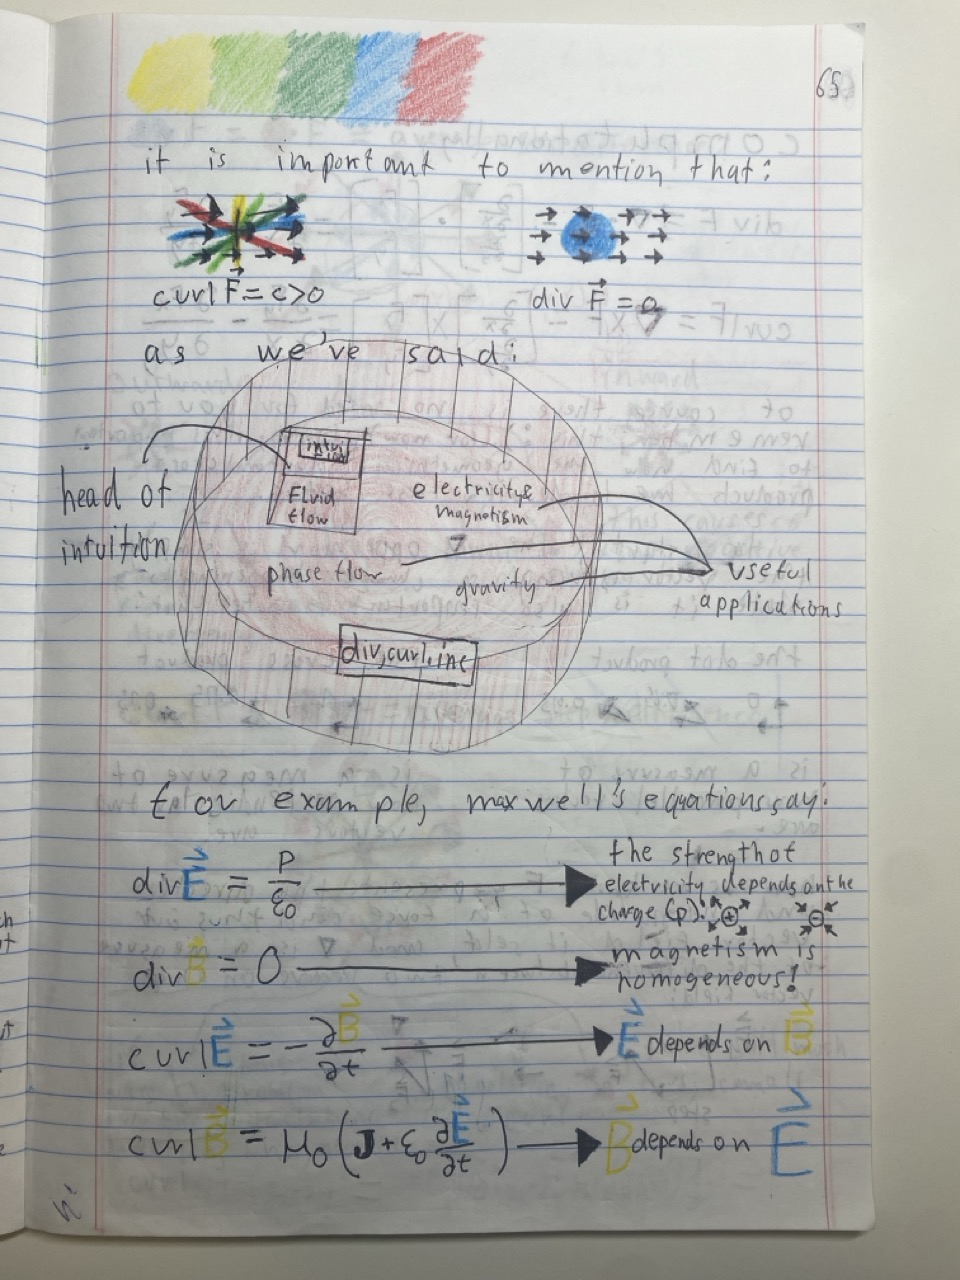 65
it is important to mention that:
curl F⃗ = c>0
div F⃗ = 0
as we've said:
head of
intuition
intui
tion
Fluid
flow
electricity&
magnetism
∇
phase flow
gravity
useful
applications
div,curl,inc
for example, maxwell's equations say:
div E⃗ = ρ/ε0 → the strength of
electricity depends on the
charge (ρ)! ⊕ ⊖
div B⃗ = 0 → magnetism is
homogeneous!
curl E⃗ = - ∂B⃗/∂t → E⃗ depends on B⃗
curl B⃗ = μ0 (J + ε0 ∂E⃗/∂t) → B⃗ depends on E⃗